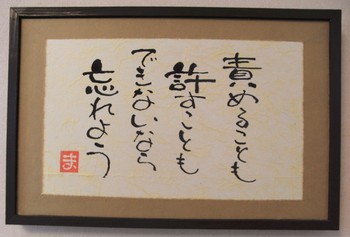 責めることも
許すことも
できないなら
忘れよう
ま